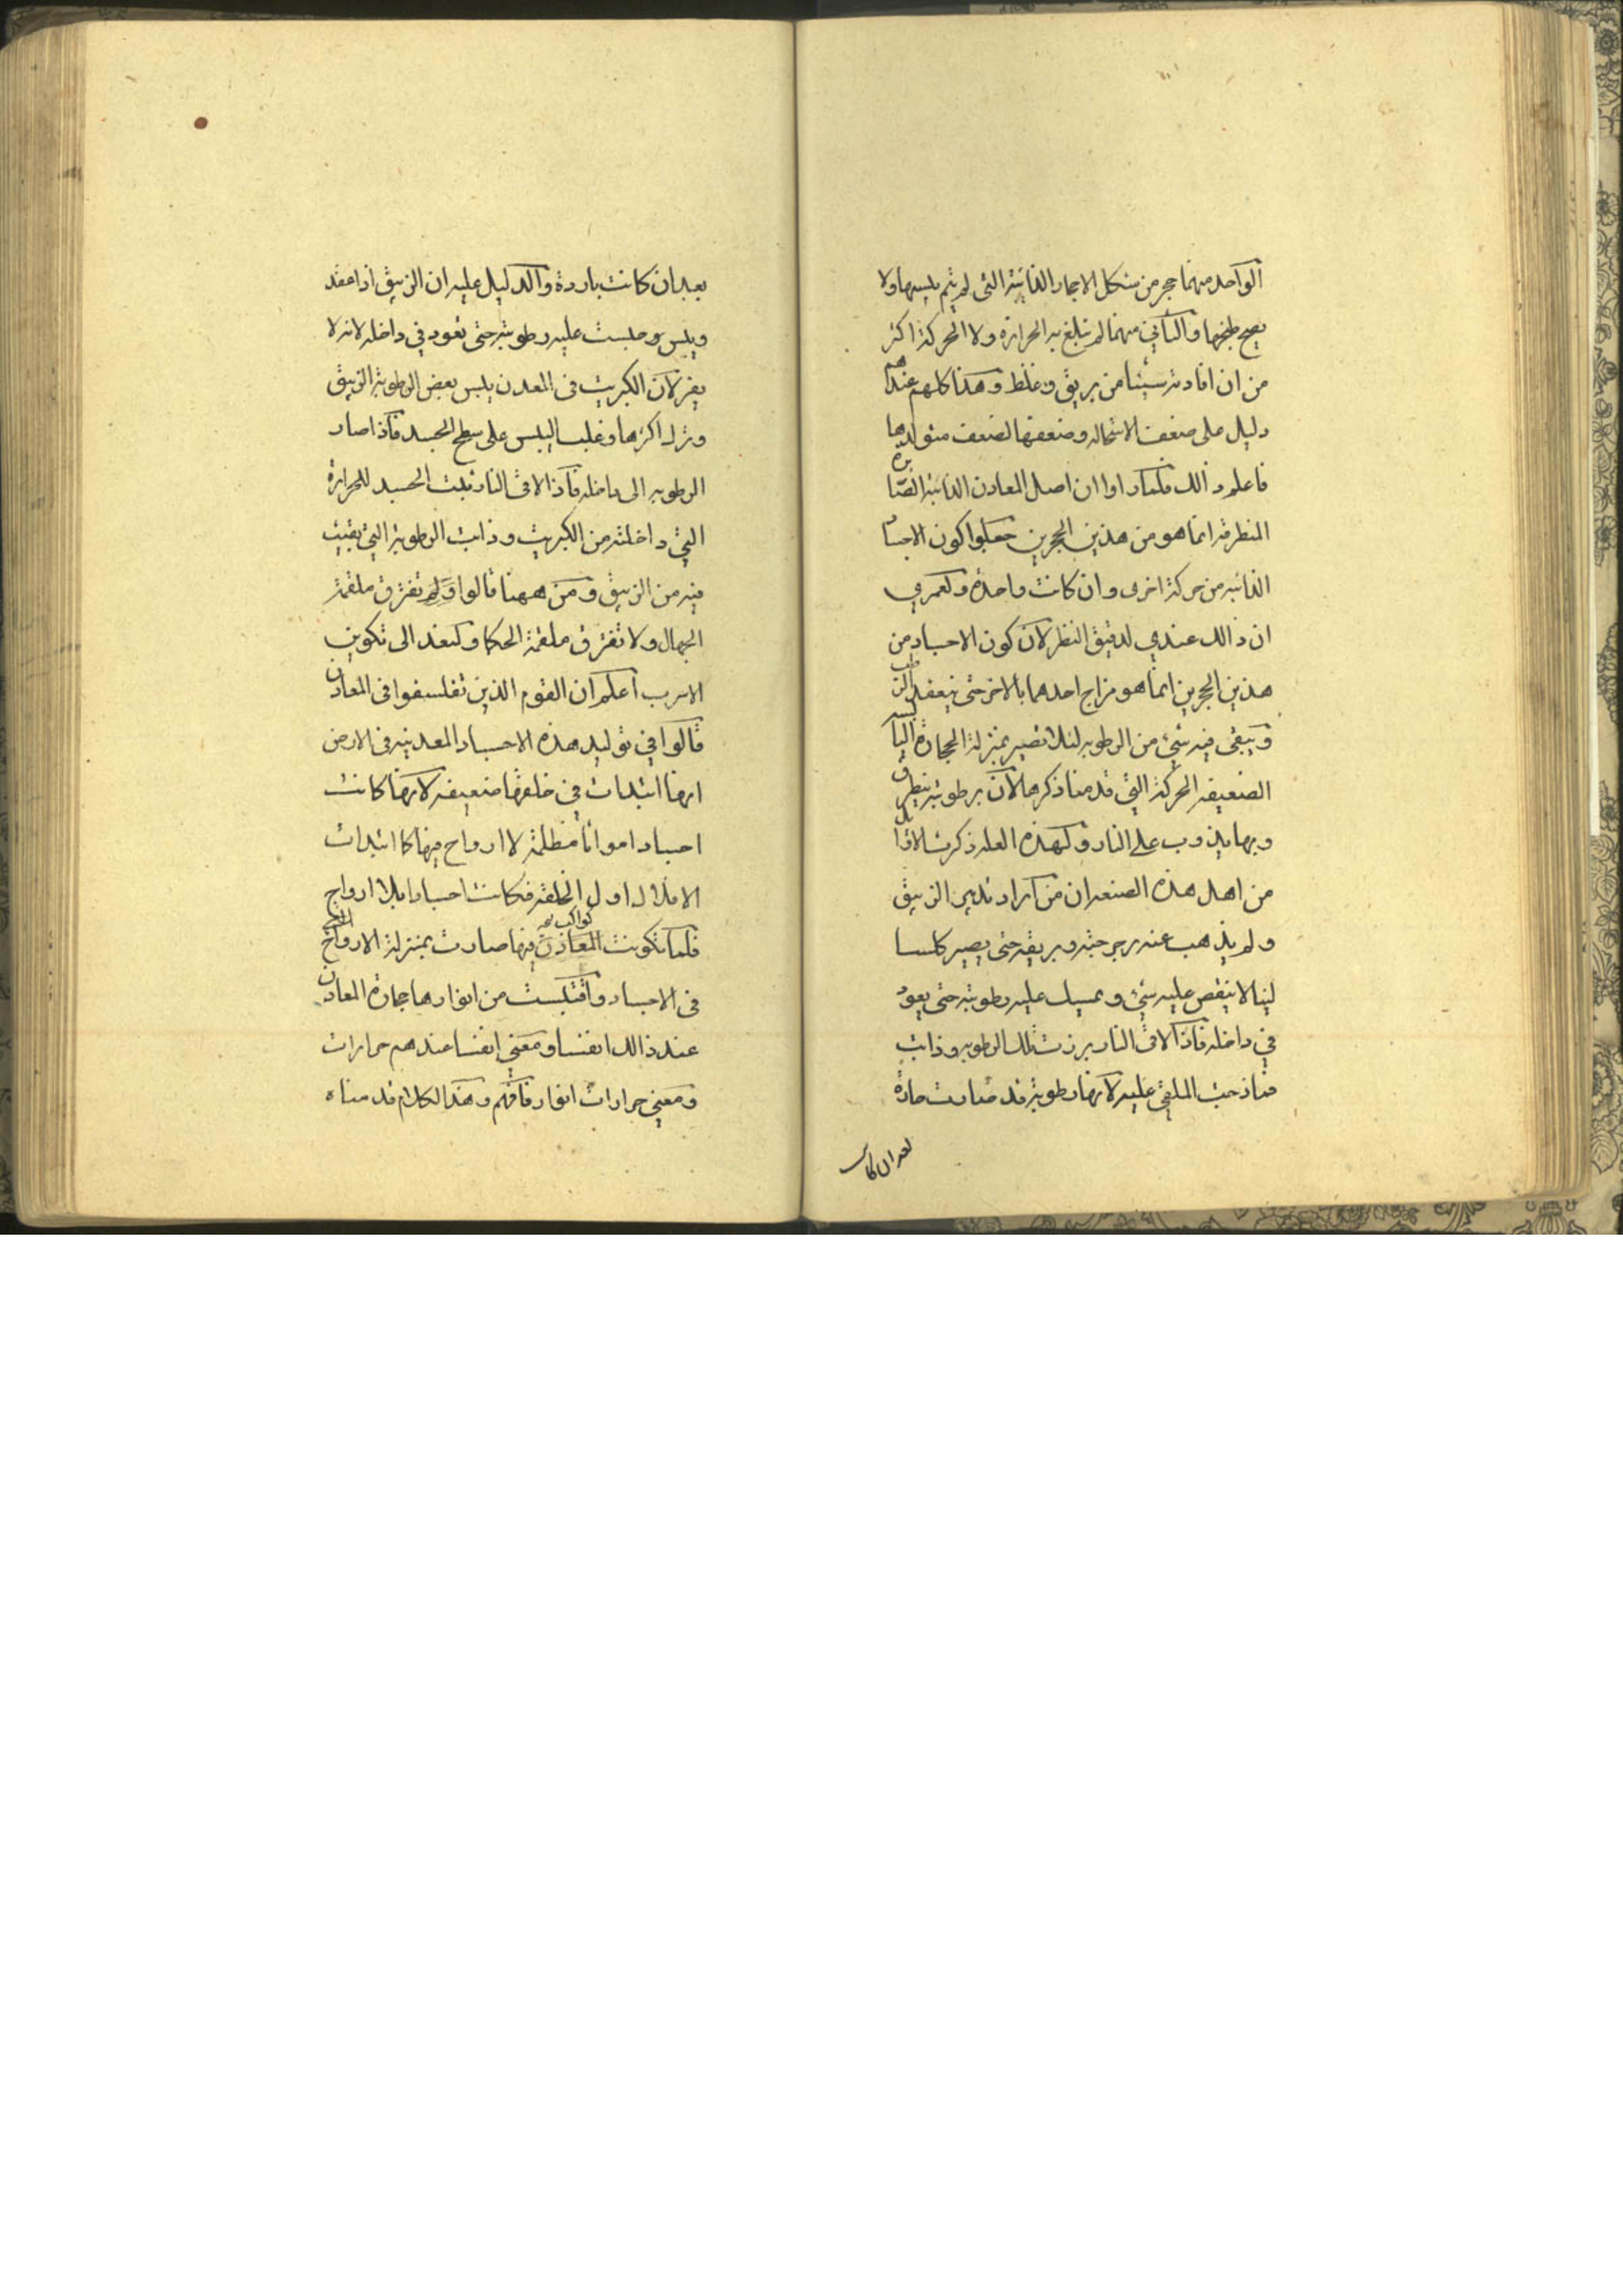 الواحد منهما حجر من شكل الاحجار الذائبة التى لم يتم يبسها ولا
يصح طبخها والثاني منهما لم تبلغ به الحرارة ولا الحركة اكثر
من ان افادته شيئا من بريق وغلظ وهذا كلهم عندهم
دليل على ضعف الاستحالة وضعفها لضعف متولدها
فاعلم ذالك فلما راوا ان اصل المعادن الذائبة الصابرة
المنطرقة انما هو من هذين الحجرين جعلوا كون الاجساد
الذائبه من حركة اخرى وان كانت واحدة ولعمري
ان ذالك عندي لدقيق النظر لان كون الاجساد من
هذين الحجرين انما هو مزاج احدهما بالاخر حتى ينعقد
ويبقى فيه شيء من الرطوبه لئلا تصير بمنزلة الحجارة اليابسه
الضعيفه الحركة التي قدمنا ذكرها لان برطوبته ينطرق
وبها يذوب على النار ولهذه العله ذكرت الاوائل
من اهل هذه الصنعه ان من اراد تدبير الزيبق
ولم يذهب عنه رجرجته وبريقه حتى يصير كلسا
لينا لا ينقص عليه شيء ويمسك عليه رطوبته حتى يعود
في داخله فاذا لاقى النار برزت تلك الرطوبه وذابت
فمازجت الملقي عليه لانها رطوبة قد صارت حارة
بعد ان كانت
بعد ان كانت باردة والدليل عليه ان الزيبق اذا عقد
ويبس وحبست عليه رطوبته حتى تعود في داخله لانه لا
يفر لان الكبريت فى المعدن يبس بعض الرطوبة الزيبق
وترك اكثرها وغلب اليبس على سطح الجسد فاذا صار
الرطوبه الى داخله فاذا لاقى النار ثبت الجسد للحرارة
التي داخلته من الكبريت وذابت الرطوبة التي بقيت
فيه من الزيبق ومن ههنا قالوا ولم تفترق ملقمة
الجهال ولا تفترق ملقمة الحكما ولنعد الى تكوين
الاسرب اعلم ان القوم الذين تفلسفوا فى المعادن
قالوا في توليد هذه الاجساد المعدنيه فى الارض
انها ابتدات في خلقها ضعيفه لانها كانت
اجسادا مواتا مظلمة لا ارواح فيها كما ابتدات
الافلاك اول الخلقه فكانت اجسادا بلا ارواح
فلما تكونت المعادن فيها صارت بمنزلة الارواح
كواكب
فى الاجساد واقتبست من انوارها حجارة المعادن
عند ذالك انفسا ومعنى انفسا عندهم حرارات
ومعنى حرارات انوار فافهم وهذا الكلام قدمناه